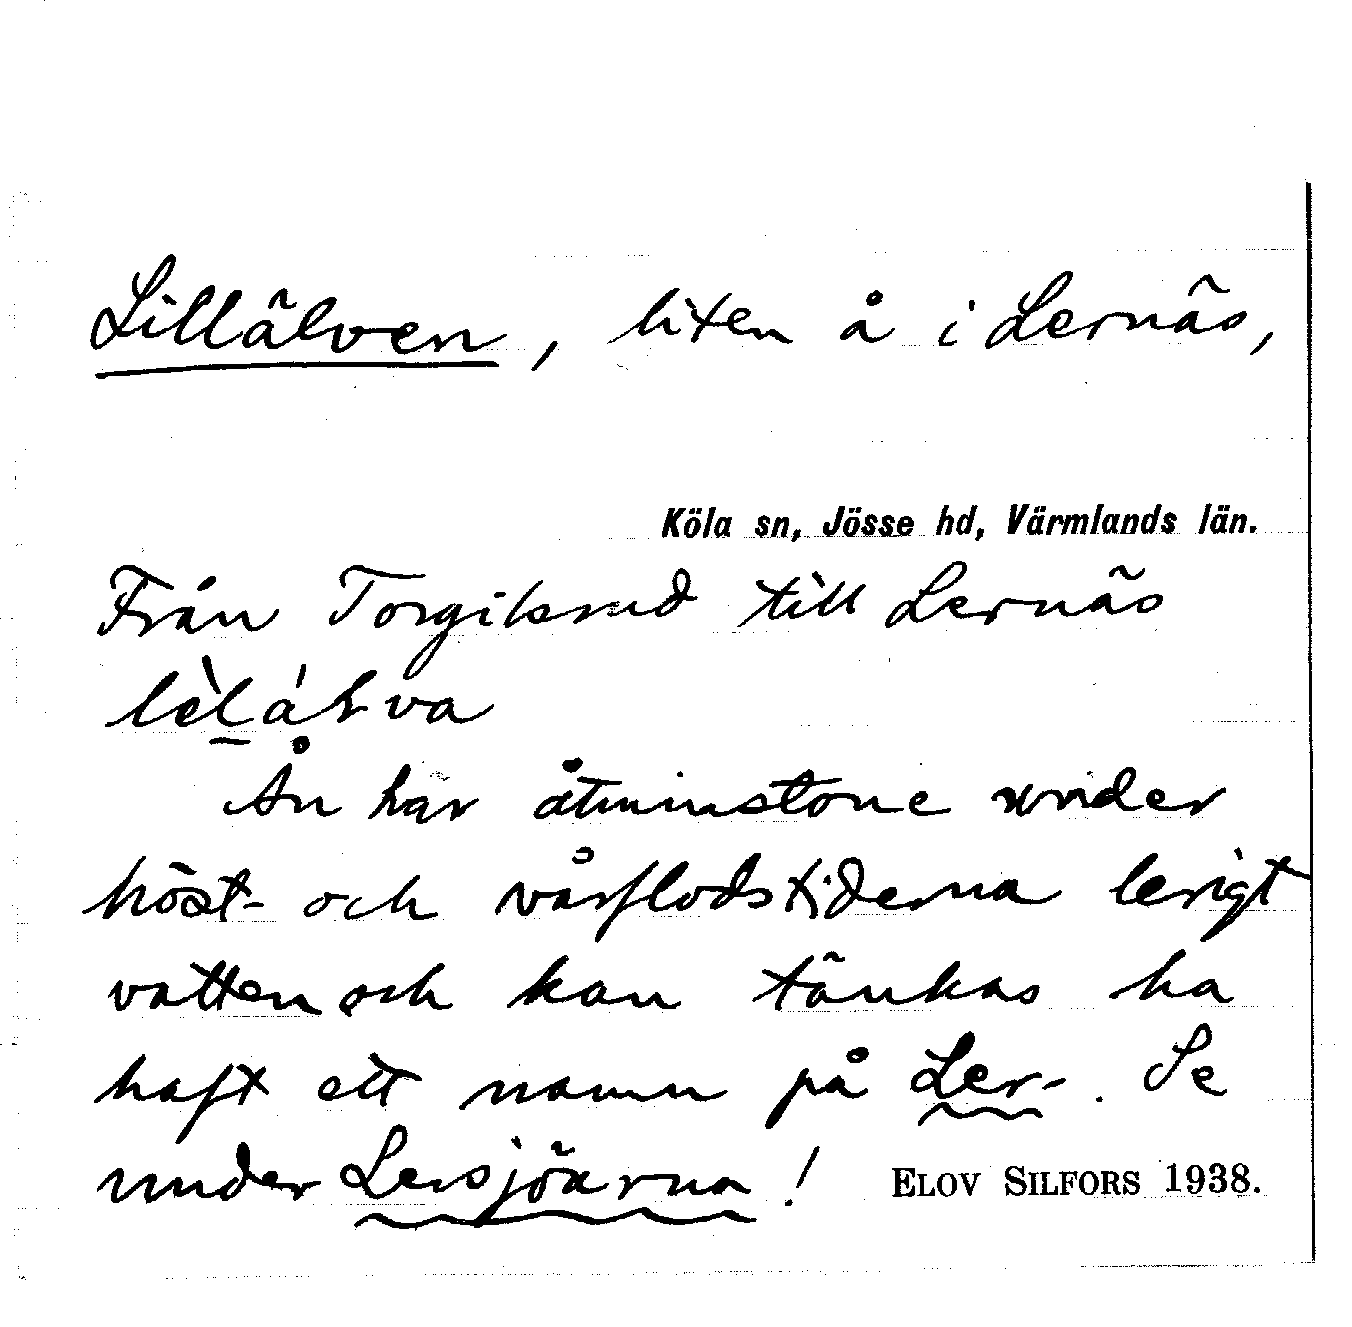 Lillälven, liten å i Lernäs,
Köla sn, Jösse hd, Värmlands län.
Från Torgilsrud till Lernäs
Ån har åtminstone under
höst- och vårflodstiderna lerigt
vatten och kan tänkas ha
haft ett namn på Ler-. Se
under Lersjöarna!
ELOV SILFORS 1938.